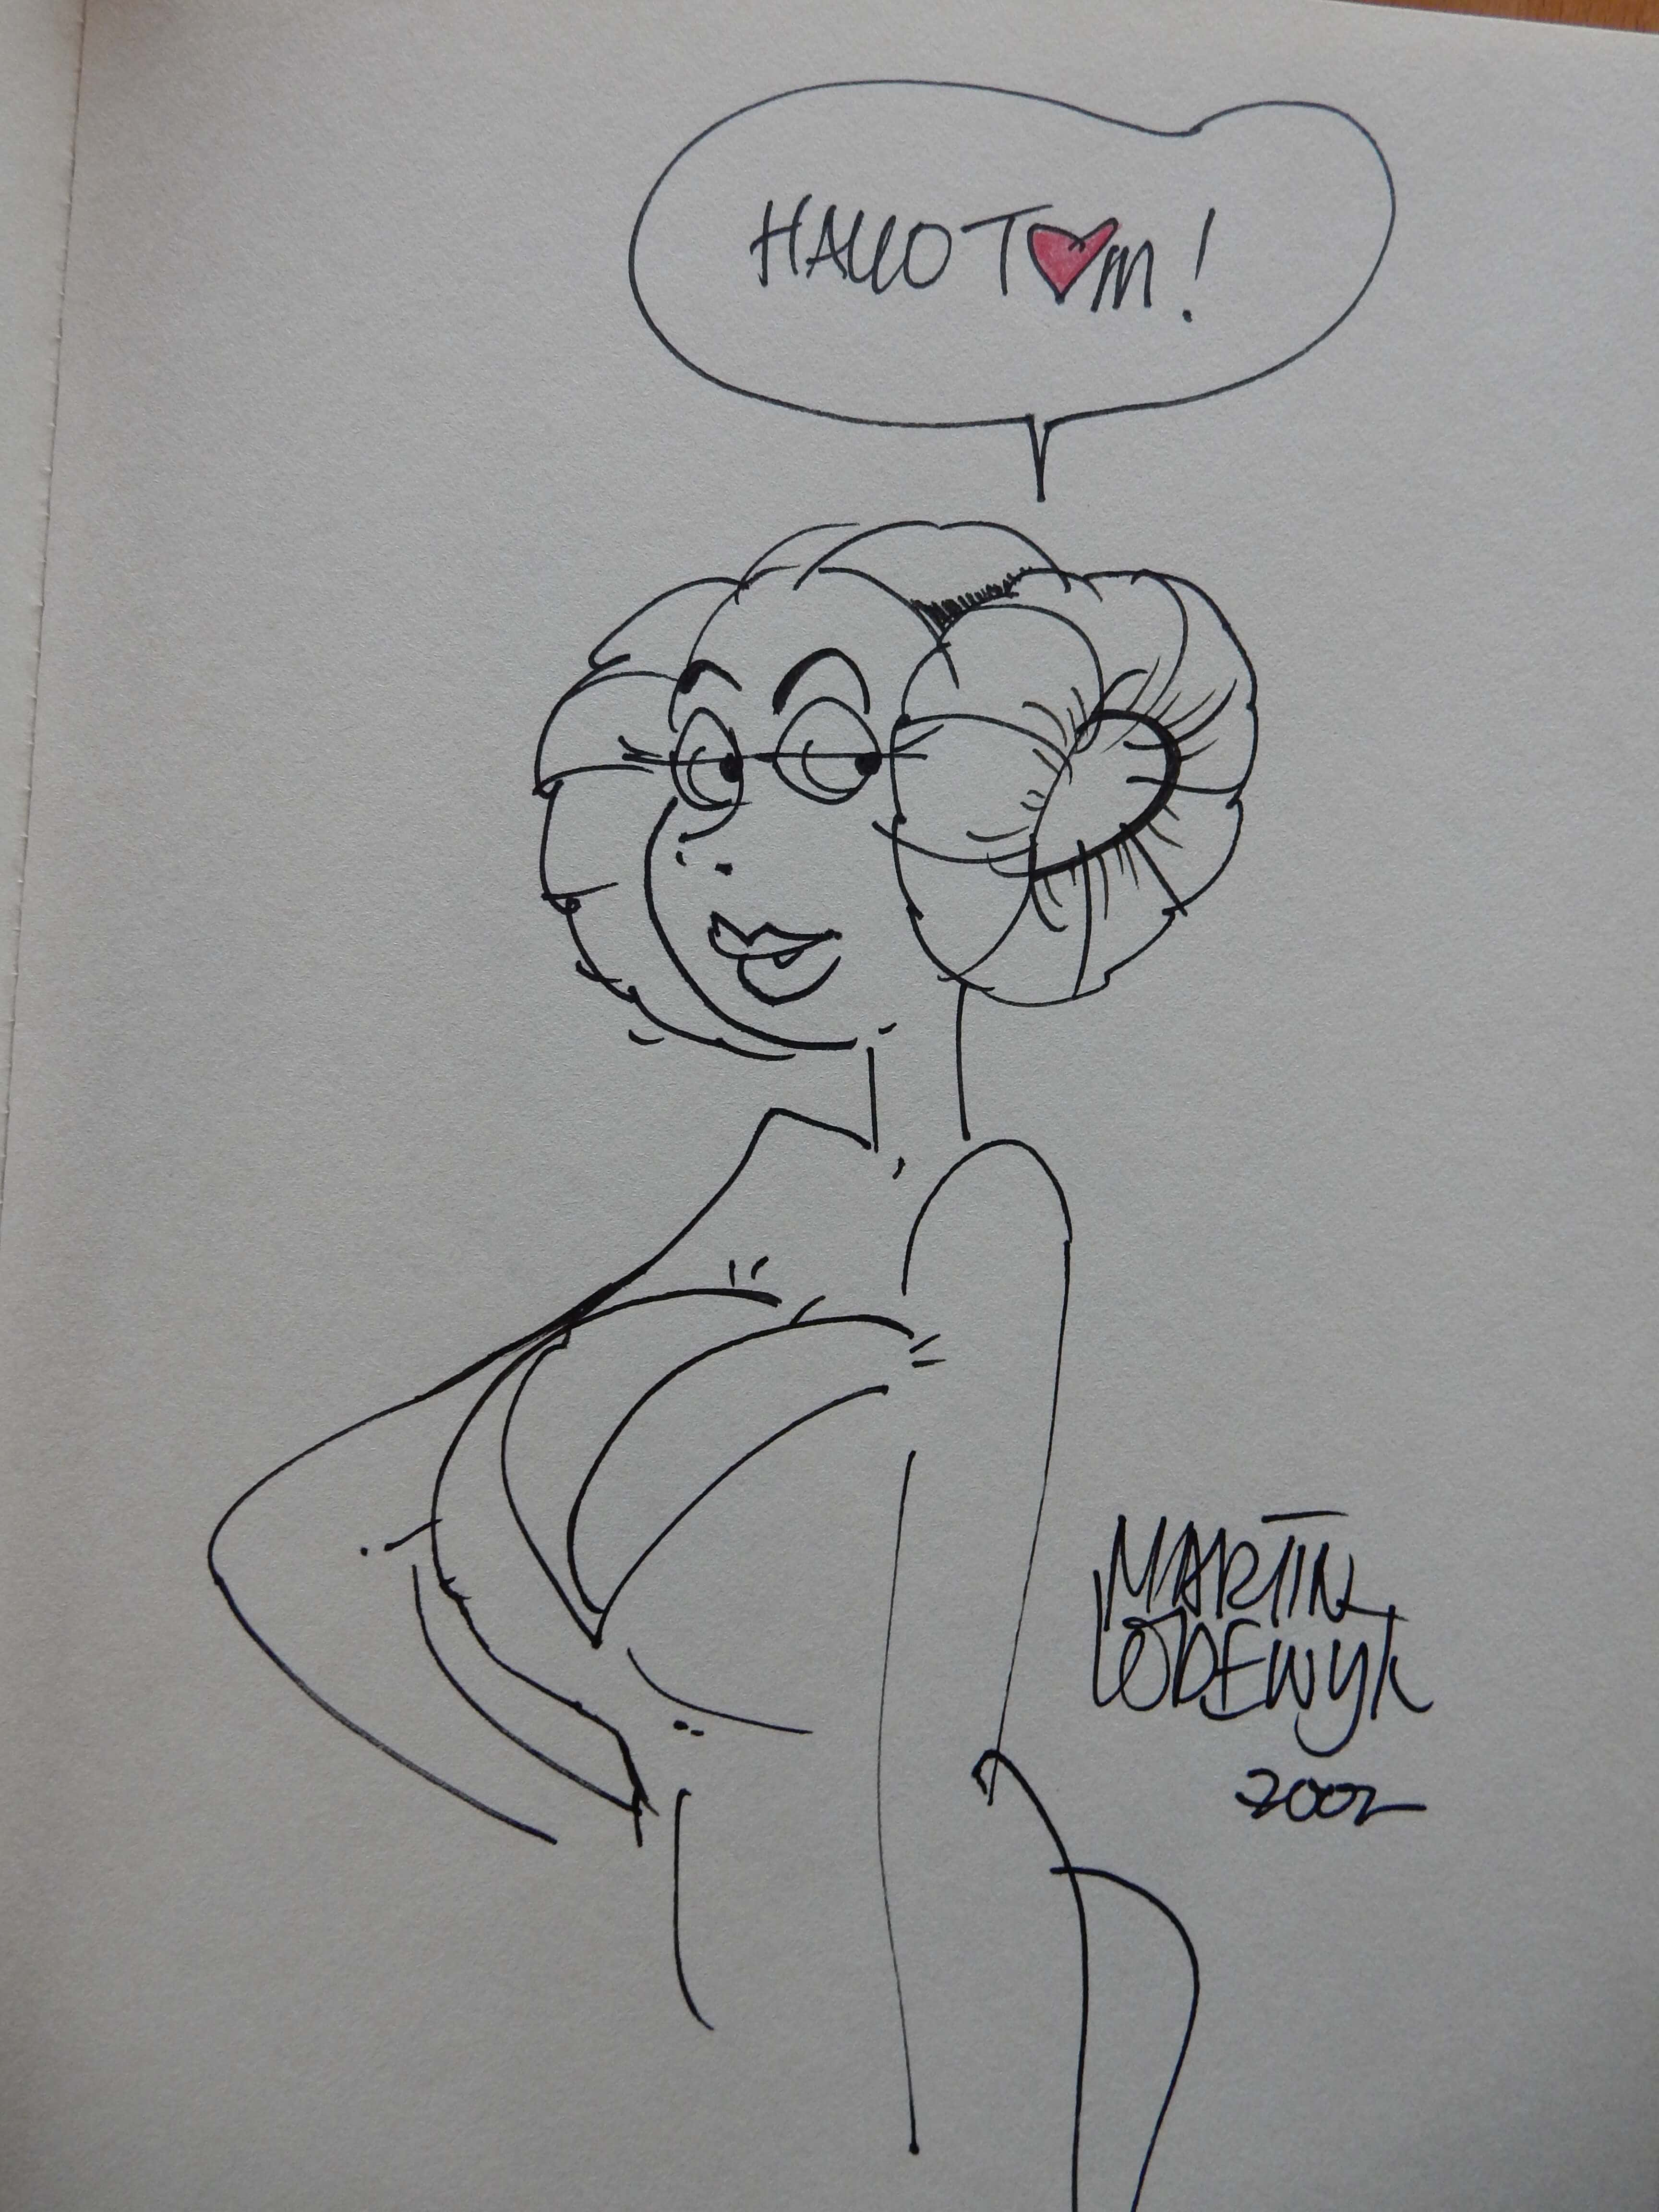 HALLO T♥M!
MARTIN
LODEWYK
2002